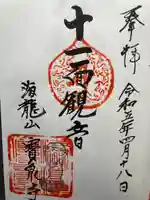 奉拝
令和五年四月十八日
十一面観音
海龍山
寶泉寺